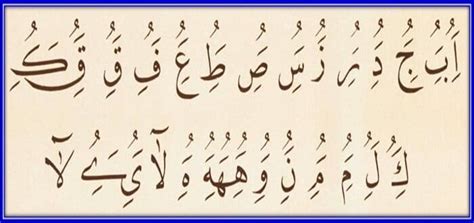 أَِبَُ جُ دُِ رَ زُ سُِ صُِ طُِ عُِ فُِ قُِ قَُ كَُِ
كَُِ لُ مُِ مُ نُ وُ هُهُهِ هُ لآ يُ ےُ لآ